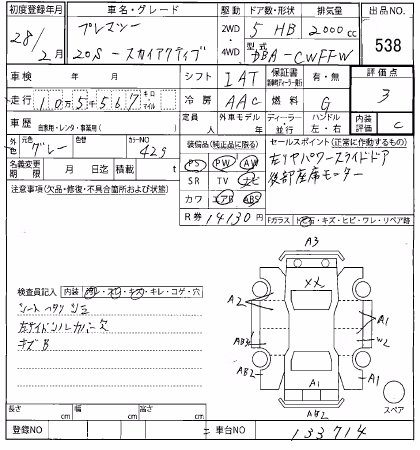 初度登録年月 車名・グレード ドア数・形状 排気量 出品NO.
28/2月 プレマシー 2WD 5 HB 2000cc 538
20S-スカイアクティブ 4WD 型式 DBA-CWFFW
車検 年 月 シフト IAT 保証書 有・無 評価点
走行 10万5567 キロ マイル 冷房 AAC 燃料 G 3
車歴 自家用・レンタ・事業用( ) 定員 人 外車モデル 年 ディーラー・並行 ハンドル 左・右 内装評価 C
外色 元色 グレー 色替 カラーNO 42S
装備品(純正品に限る) セールスポイント(正常に作動するもの)
名義変更期限 月 日迄 積載 t
PS PW AW 左リヤパワースライドドア
SR TV ナビ 後部座席モーター
注意事項(欠品・修復・不具合箇所および状態)
カワ エアB ABS
R券 14130円 Fガラス ト石・キズ・ヒビ・ワレ・リペア跡
A3
XX
A2
A1
AB2
W2
A1
AB2
A1
AB2
スペア
検査員記入 内装 ヨゴレ・スレ・キズ・キレ・コゲ・穴
シートヘタリ シミ
キズB
長さ cm 幅 cm 高さ cm
登録NO 車台NO 133714